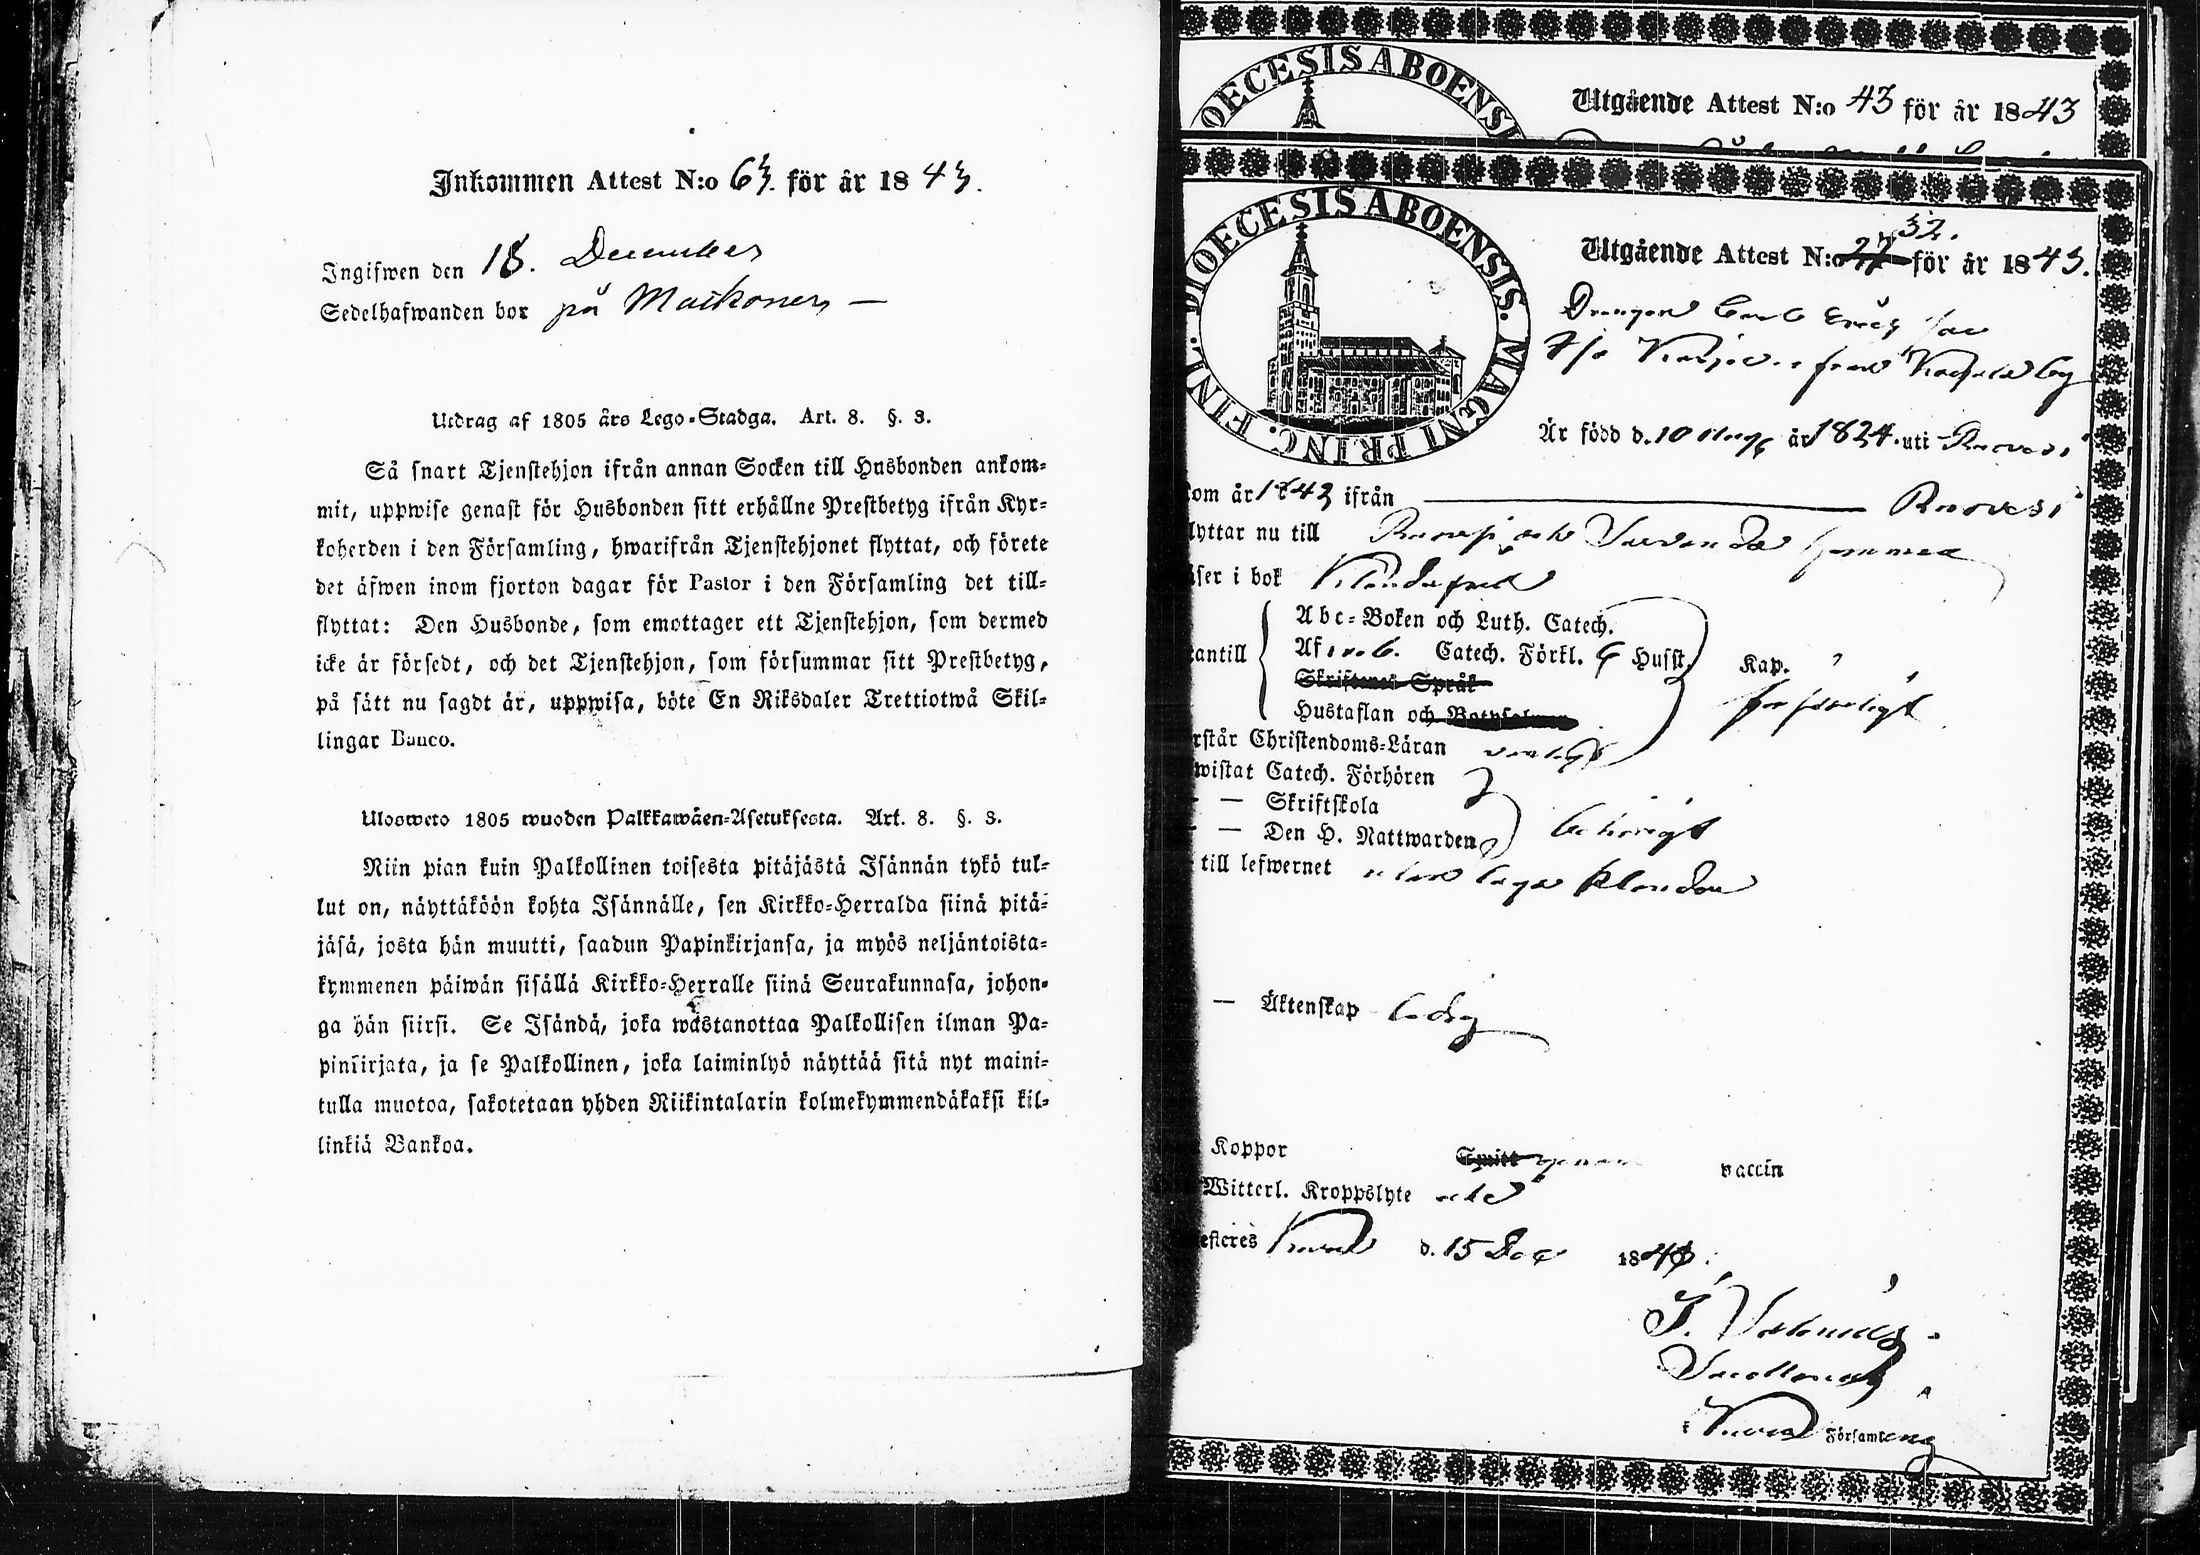 Inkommen Attest N:o 63. för år 1843.
Ingifwen den 18. December
Sedelhafwanden bor på Maikoner
Utdrag af 1805 års Lego-Stadga. Art. 8. §. 3.
Så snart Tjenstehjon ifrån annan Socken till Husbonden ankom-
mit, uppwise genast för Husbonden sitt erhållne Prestbetyg ifrån Kyr-
koherden i den Församling, hwarifrån Tjenstehjonet flyttat, och förete
det äfwen inom fjorton dagar för Pastor i den Församling det till-
flyttat: Den Husbonde, som emottager ett Tjenstehjon, som dermed
icke är försedt, och det Tjenstehjon, som försummar sitt Prestbetyg,
på sätt nu sagdt är, uppwisa, böte En Riksdaler Trettiotwå Skil-
lingar Banco.
Ulosweto 1805 wuoden Palkkawäen-Asetuksesta. Art. 8. §. 3.
Niin pian kuin Palkollinen toisesta pitäjästä Isännän tykö tul-
lut on, näyttäköön kohta Isännälle, sen Kirkko-Herralda siinä pitä-
jäsä, josta hän muutti, saadun Papinkirjansa, ja myös neljäntoista-
kymmenen päiwän sisällä Kirkko-Herralle siinä Seurakunnasa, johon-
ga hän siirsi. Se Isändä, joka wastanottaa Palkollisen ilman Pa-
pinkirjata, ja se Palkollinen, joka laiminlyö näyttää sitä nyt maini-
tulla muotoa, sakotetaan yhden Riikintalarin kolmekymmendäkaksi kil-
linkiä Bankoa.
DIOECESIS ABOENSIS
Utgående Attest N:o 43 för år 1843
DIOECESIS ABOENSIS. MAGNI PRINC. FINL.
32.
Utgående Attest N:o 27 för år 1843.
Drengen Carl
från by
Är född d. 10 Aug år 1824 uti
om år 1843 ifrån
lyttar nu till och
äser i bok
Abc-Boken och Luth. Catech.
antill Af Catech. Förkl. Husst. Kap.
Skriftenes Språk
Hustaflan och Botpsalmen försvarligt
rstår Christendoms-Läran
wistat Catech. Förhören
— Skriftskola
— Den H. Nattwarden behörigt
till lefwernet utan laga klander
— Äktenskap ledig
Koppor Smitt genom vaccin
Witterl. Kroppslyte
esteres d. 15 Dec 1843.
Församling